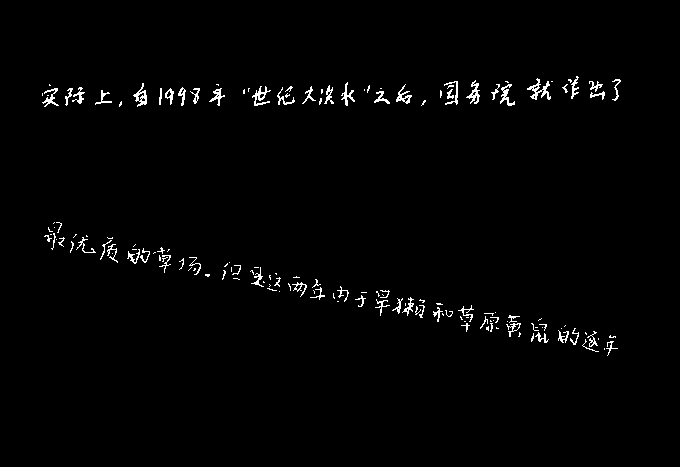 实际上，自1998年“世纪大洪水”之后，国务院就作出了
最优质的草场。但是这两年由于旱獭和草原黄鼠的逐年